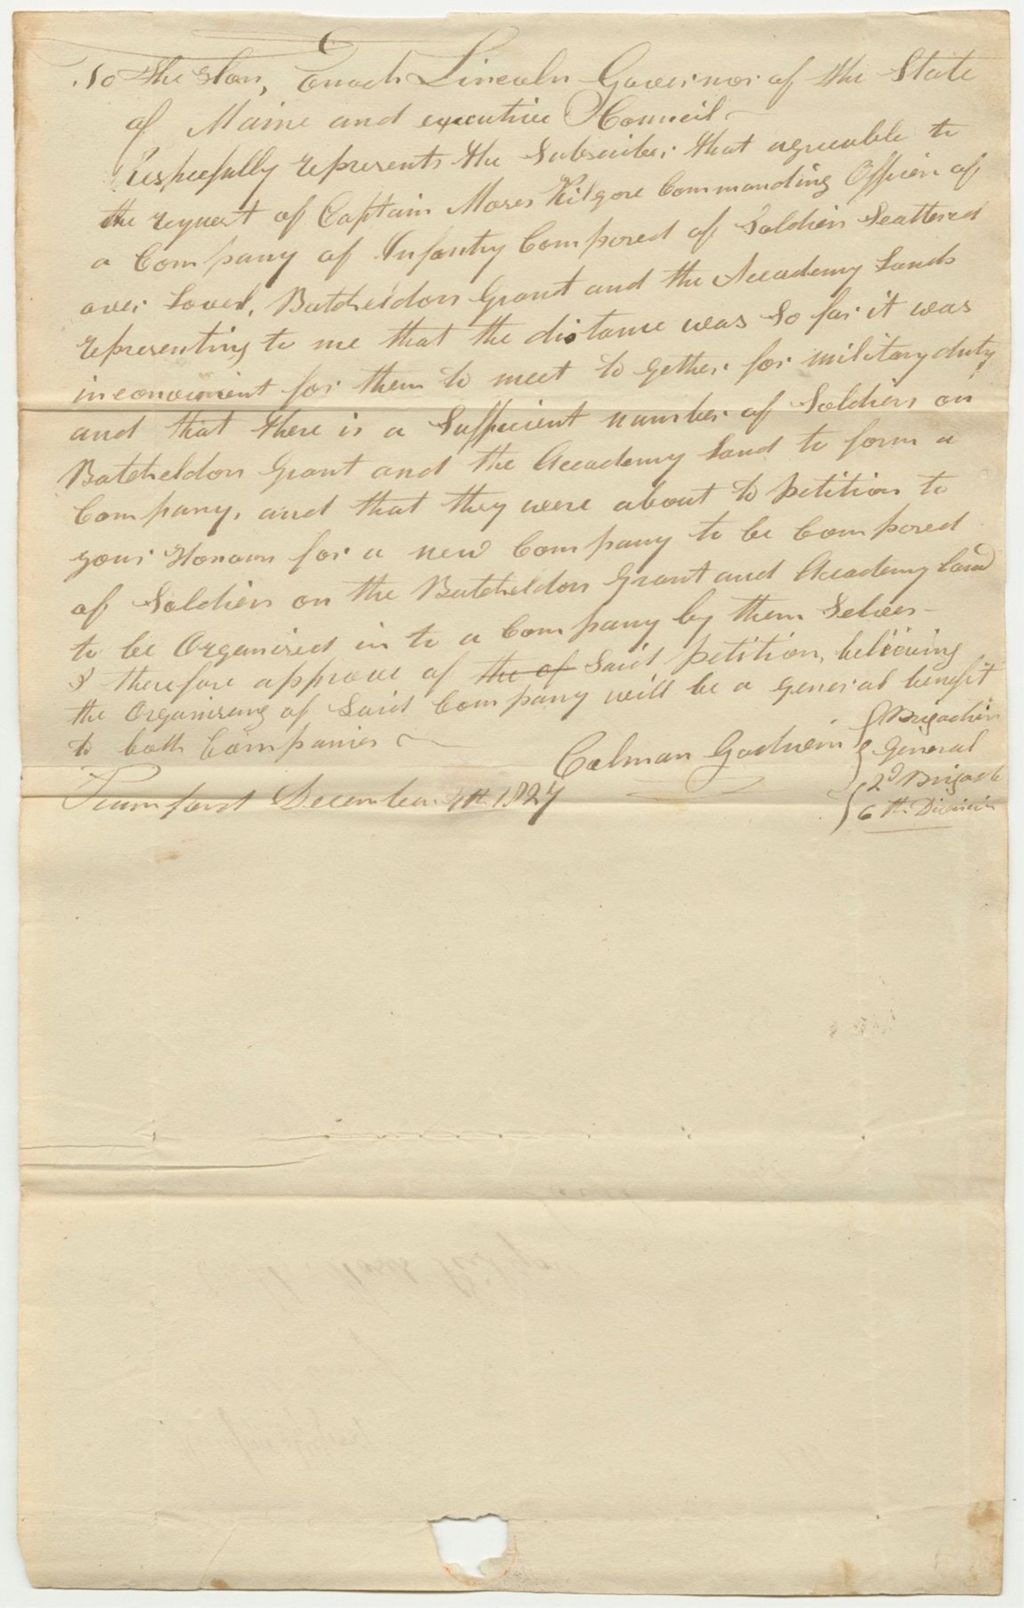 To the Hon, Enoch Lincoln Governor of the State
of Maine and executive Council
Respecfully represents the Subscriber that agreeable to
the request of Captain Moses Kilgore Commanding Officer of
a Company of Infantry Composed of Soldiers Scattered
over Lovel, Batcheldors Grant and the Accademy Lands
representing to me that the distance was So far it was
inconvenient for them to meet to gether for military duty
and that there is a Sufficient number of Soldiers on
Batcheldors Grant and the Accademy Land to form a
Company, and that they were about to petition to
your Honours for a new Company to be Composed
of Soldiers on the Batcheldors Grant and Accademy land
to be Organised in to a Company by them Selves
I therefore approve of the of Said petition, believing
the Organiseng of Said Company will be a general benefit
to both Companies
Calman Godwin Brigadier
General
2d Brigade
6th Division
Rumford December 4th 1827